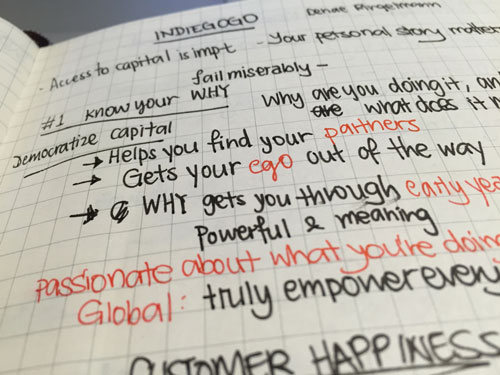 INDIEGOGO
- Access to capital is impt - Your personal story matter
fail miserably -
#1 know your WHY why are you doing it, an
Democratize capital are what does it
→ Helps you find your partners
→ Gets your ego out of the way
→ WHY gets you through early yea
Powerful & meaning
passionate about what you're doing
Global: truly empower every
CUSTOMER HAPPINESS